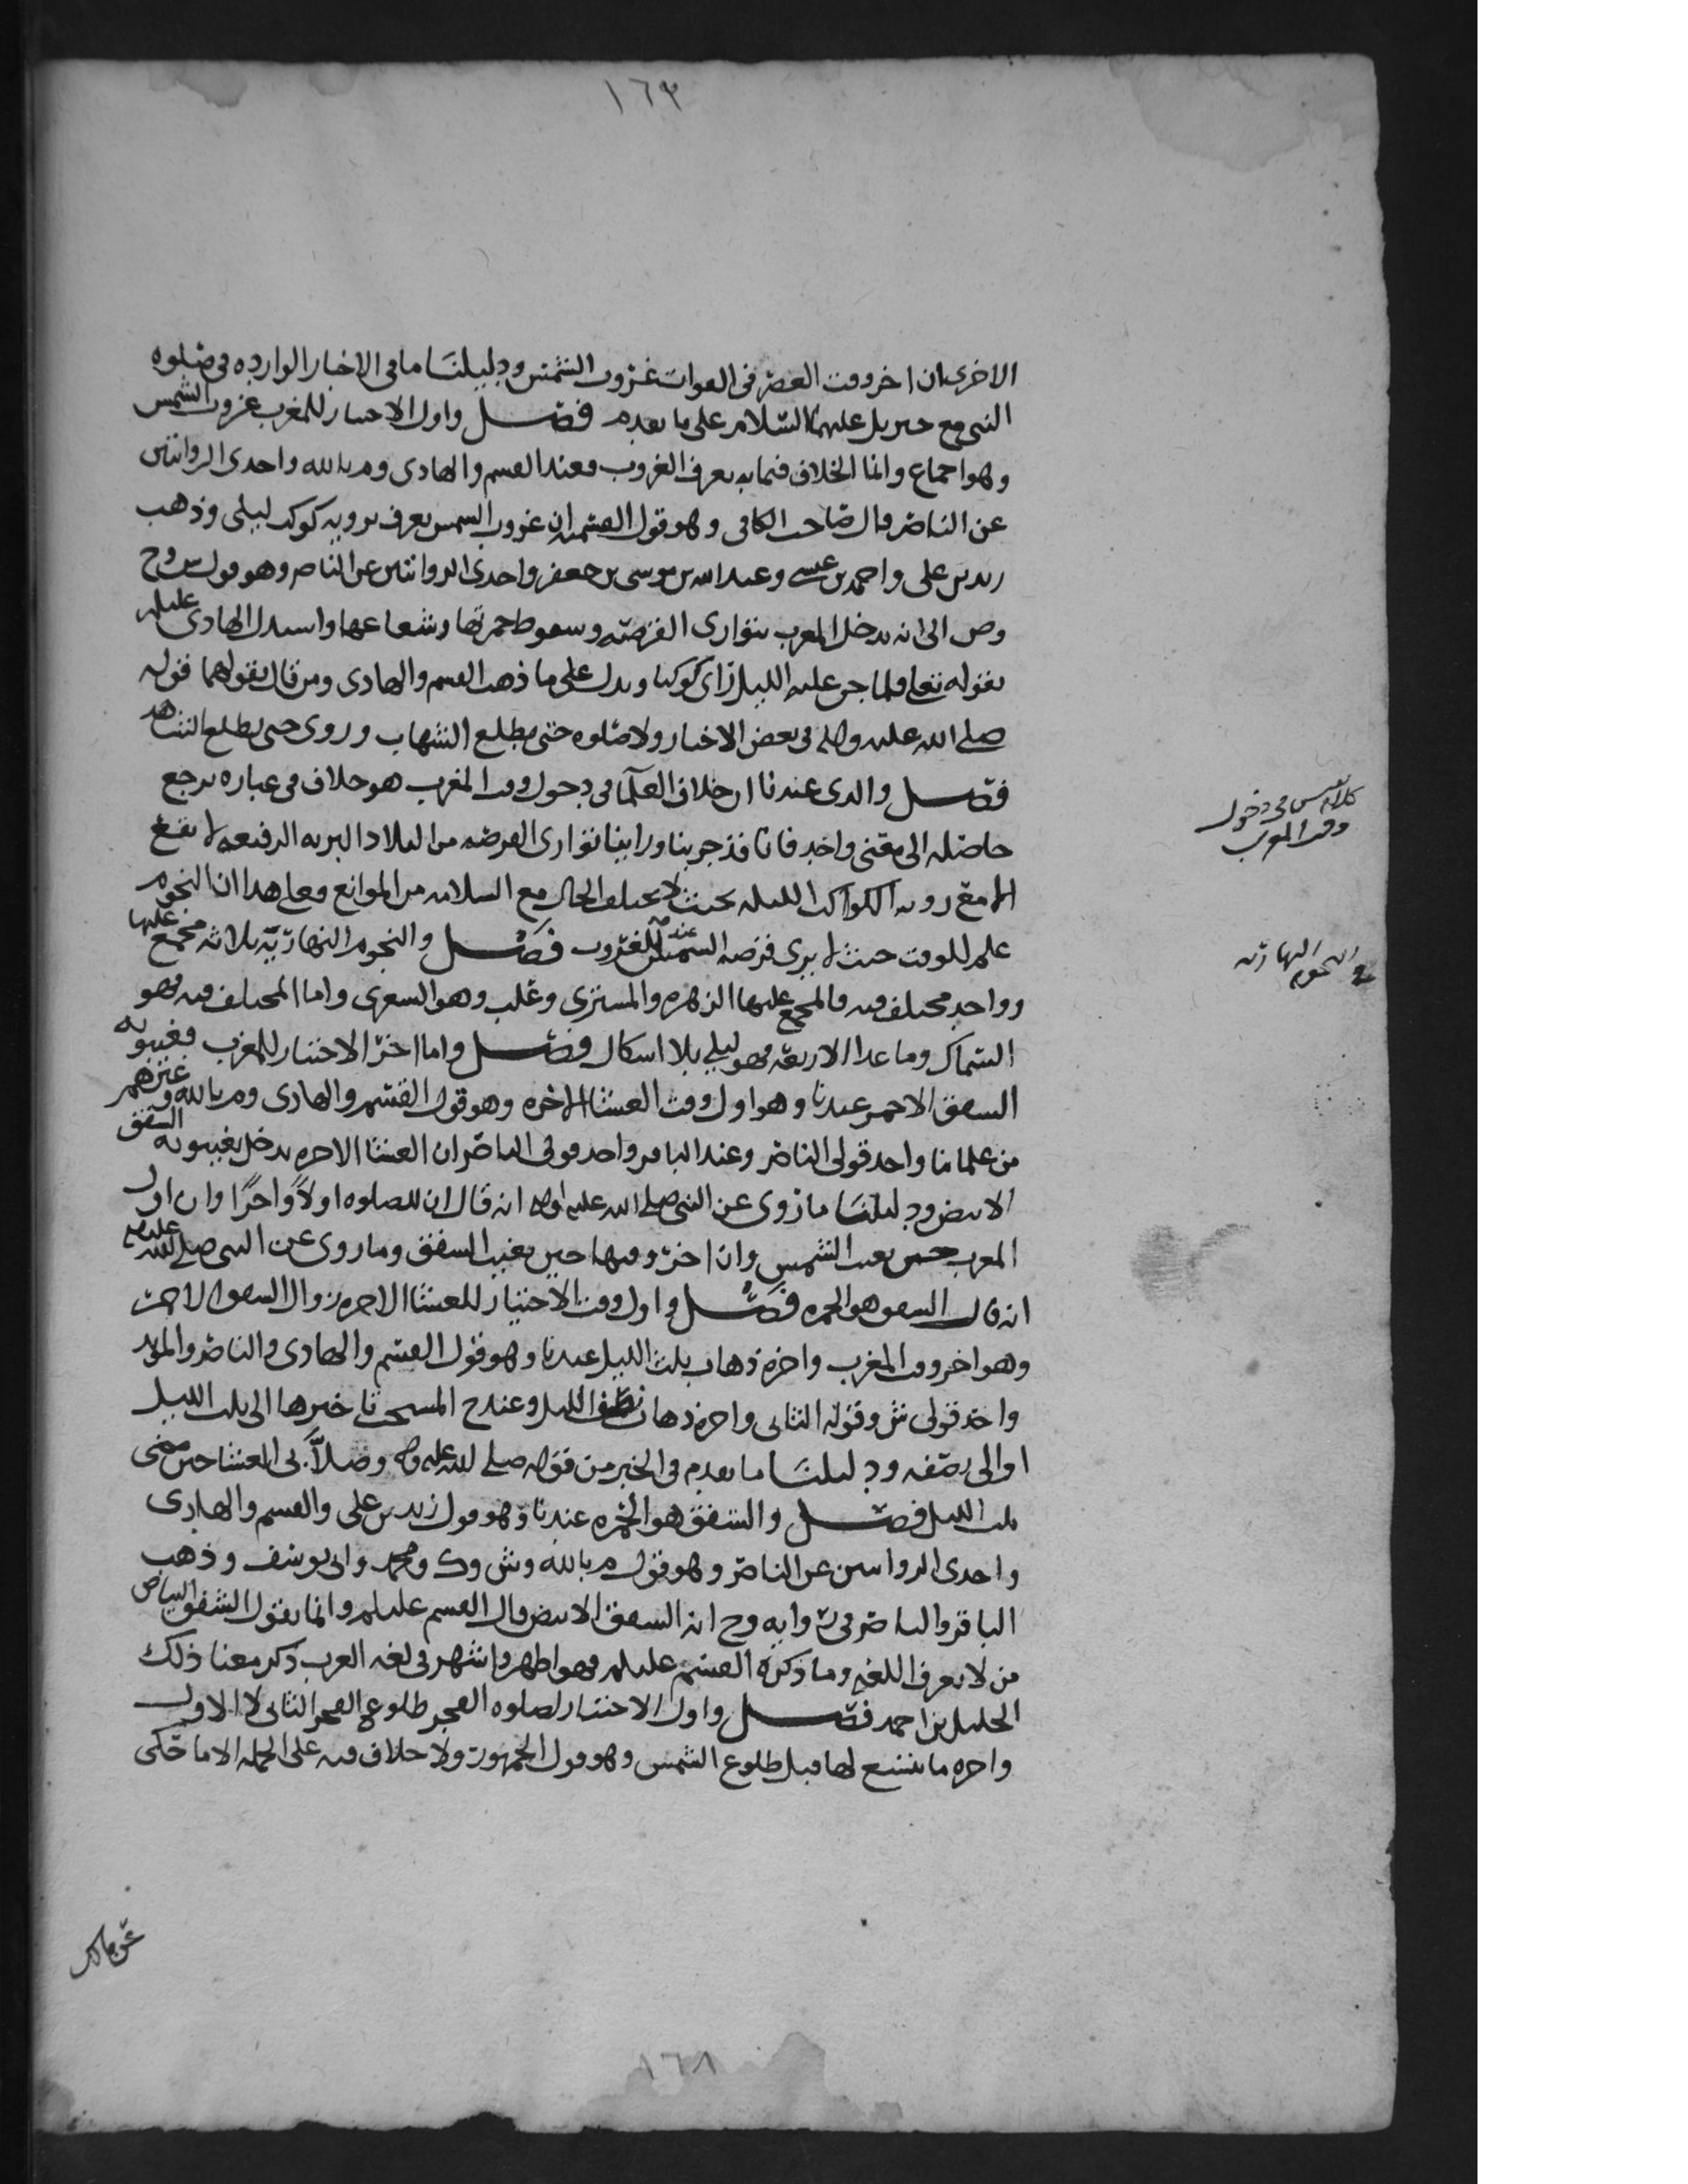 ١٦٣
الاخرى ان اخر وقت العصر في الفوات غروب الشمس ودليلنا ما في الاخبار الوارده في صلوه
النبي مع جبريل عليهما السلام على ما تقدم فصل واول الاختيار للمغرب غروب الشمس
وهو اجماع وانما الخلاف فيما به يعرف الغروب فعند القسم والهادي وم بالله واحدى الروايتين
عن الناصر قال صاحب الكافي وهو قول القسميه ان غروب الشمس يعرف برويه كوكب ليلي وذهب
زيد بن علي واحمد بن عيسى وعبد الله بن موسى بن جعفر واحدى الروايتين عن الناصر وهو قول ش وح
وص الى انه يدخل المغرب بتواري القرصه وسقوط حمرتها وشعاعها واستدل الهادي عليلم
بقوله تعلى فلما جن عليه الليل رأى كوكبا ويدل على ما ذهب القسم والهادي ومن قال بقولهما قوله
صلى الله عليه واله في بعض الاخبار ولا صلوه حتى يطلع الشهاب وروي حتى يطلع الشاهد
فصل والذي عندنا ان خلاف العلما في دخول وقت المغرب هو خلاف في عباره يرجع
حاصله الى معنى واحد فانا قد جربنا وراينا تواري القرصه من البلاد البريه الرفيعه لا يقع
الا مع رويه الكواكب الليليه بحيث لا يختلف الحال مع السلامه من الموانع فعلى هذا ان النجوم
علم للوقت حيث لا يرى قرصه الشمس عند الغروب فصل والنجوم النهاريه ثلاثه مجمع عليها
وواحد مختلف فيه فالمجمع عليها الزهره والمشتري وعلب وهو الشعرى واما المختلف فيه فهو
السماك وما عدا الاربعه فهو ليلي بلا اشكال فصل واما اخر الاختيار للمغرب فغيبوبه
الشفق الاحمر عندنا وهو اول وقت العشا الاخره وهو قول القسم والهادي وم بالله وغيرهم
من علمائنا واحد قولي الناصر وعند الباقر واحد قولي الناصر ان العشا الاخره يدخل بغيبوبه الشفق
الابيض ودليلنا ما روي عن النبي صلى الله عليه واله انه قال ان للصلوه اولا واخرا وان اول
المغرب حين تغيب الشمس وان اخر وقتها حين يغيب الشفق وما روي عن النبي صلى الله عليه واله
انه قال الشفق هو الحمره فصل واول وقت الاختيار للعشا الاخره زوال الشفق الاحمر
وهو اخر وقت المغرب واخره ذهاب ثلث الليل عندنا وهو قول القسم والهادي والناصر والمؤيد
واحد قولي ش وقوله الثاني واخره ذهاب نصف الليل وعند ح المستحب تاخيرها الى ثلث الليل
او الى نصفه ودليلنا ما تقدم في الخبر من قوله صلى الله عليه واله وصلا بي العشا حين مضى
ثلث الليل فصل والشفق هو الحمره عندنا وهو قول زيد بن علي والقسم والهادي
واحدى الروايتين عن الناصر وهو قول م بالله وش وك ومحمد وابي يوسف وذهب
الباقر والناصر في روايه وح انه الشفق الابيض قال القسم عليلم وانما يقول الشفق البياض
من لا يعرف اللغه وما ذكره القسم عليلم فهو اظهر واشهر في لغه العرب ذكر معنا ذلك
الخليل بن احمد فصل واول الاختيار لصلوه الفجر طلوع الفجر الثاني لا الاول
واخره ما يتسع لها قبل طلوع الشمس وهو قول الجمهور ولا خلاف فيه على الجمله الا ما حكى
كلام نفيس في دخول
وقت المغرب
في النجوم النهاريه
عن مالك
١٦٨